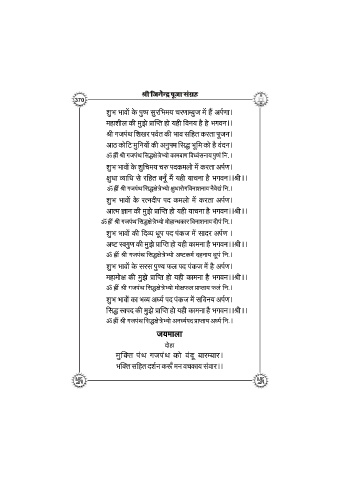 श्री जिनेन्द्र पूजा संग्रह
370
शुभ भावों के पुष्प सुरभिमय चरणाम्बुज में हैं अर्पण।
महाशील की मुझे प्राप्ति हो यही विनय है हे भगवन।।
श्री गजपंथ शिखर पर्वत की भाव सहित करता पूजन।
आठ कोटि मुनियों की अनुपम सिद्ध भूमि को है वंदन।
ॐ ह्रीं श्री गजपंथ सिद्धक्षेत्रेभ्यो कामबाण विध्वंसनाय पुष्पं नि. ।
शुभ भावों के शुचिमय चरु पदकमलों में करता अर्पण।
क्षुधा व्याधि से रहित बनूँ मैं यही याचना है भगवन।।श्री।।
ॐ ह्रीं श्री गजपंथ सिद्धक्षेत्रेभ्यो क्षुधारोगविनाशनाय नैवेद्यं नि. ।
शुभ भावों के रत्नदीप पद कमलो में करता अर्पण।
आत्म ज्ञान की मुझे प्राप्ति हो यही याचना है भगवन।।श्री।।
ॐ ह्रीं श्री गजपंथ सिद्धक्षेत्रेभ्यो मोहान्धकार विनाशनाय दीपं नि. ।
शुभ भावों की दिव्य धूप पद पंकज में सादर अर्पण ।
अष्ट स्वगुण की मुझे प्राप्ति हो यही कामना है भगवन।।श्री।।
ॐ ह्रीं श्री गजपंथ सिद्धक्षेत्रेभ्यो अष्टकर्म दहनाय धूपं नि. ।
शुभ भावों के सरस पुण्य फल पद पंकज में है अर्पण।
महामोक्ष की मुझे प्राप्ति हो यही कामना है भगवन।।श्री।।
ॐ ह्रीं श्री गजपंथ सिद्धक्षेत्रेभ्यो मोक्षफल प्राप्ताय फलं नि. ।
शुभ भावों का भव्य अर्घ्य पद पंकज में सविनय अर्पण।
सिद्ध स्वपद की मुझे प्राप्ति हो यही कामना है भगवन।।श्री।।
ॐ ह्रीं श्री गजपंथ सिद्धक्षेत्रेभ्यो अनर्घ्यपद प्राप्ताय अर्घ्यं नि. ।
जयमाला
दोहा
मुक्ति पंथ गजपंथ को वंदू बारम्बार।
भक्ति सहित दर्शन करूँ मन वचकाय संवार।।